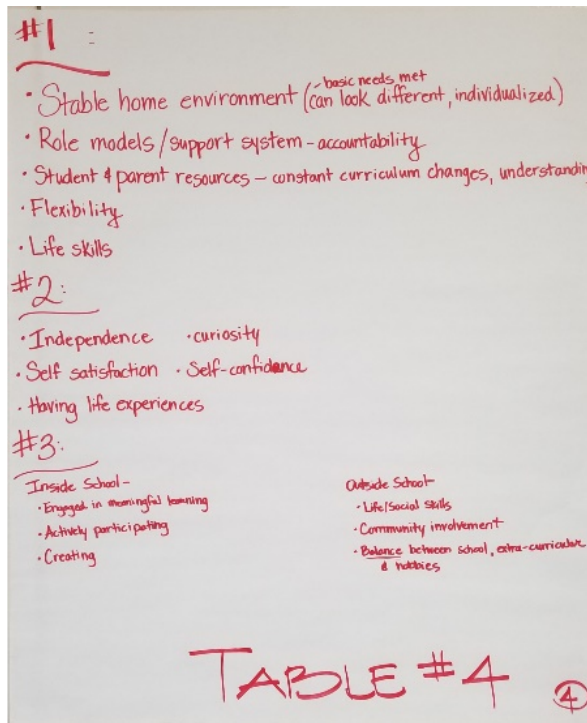 #1 :
- basic needs met
• Stable home environment (can look different, individualized)
• Role models / support system - accountability
• Student & parent resources - constant curriculum changes, understandin
• Flexibility
• Life skills
#2:
• Independence • curiosity
• Self satisfaction • Self-confidence
• Having life experiences
#3:
Inside School-
• Engaged in meaningful learning
• Actively participating
• Creating
Outside School-
• Life/Social Skills
• Community involvement
• Balance between school, extra-curricular
& hobbies
TABLE #4
4